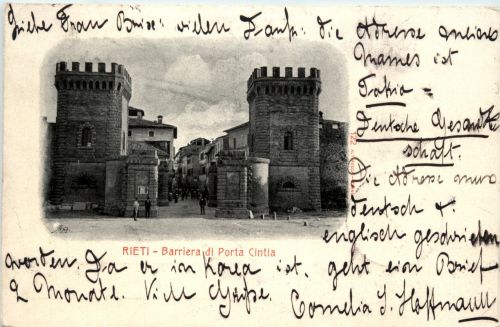 Liebe Frau Brise: vielen Dank: die Adresse meines
Mannes ist
Tokio =
Deutsche Gesandt
schaft.
Die Adresse muss
deutsch &
englisch geschrieben
RIETI - Barriera di Porta Cintia
werden. Da er in Korea ist, geht ein Brief
2 Monate. Viele Grüsse.
Cornelia J. Hoffmann